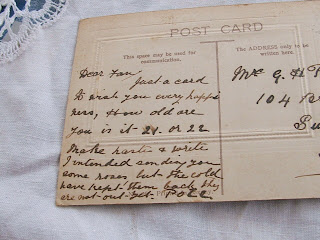 POST CARD
This space may be used for communication.
The ADDRESS only to be written here.
Dear Fan
Just a card
to wish you every happi
ness, & how old are
you is it 21. or 22
Make haste & write
I intended sending you
some roses but the cold
have kept them back they
are not out yet. POLL
Mr G. H
104